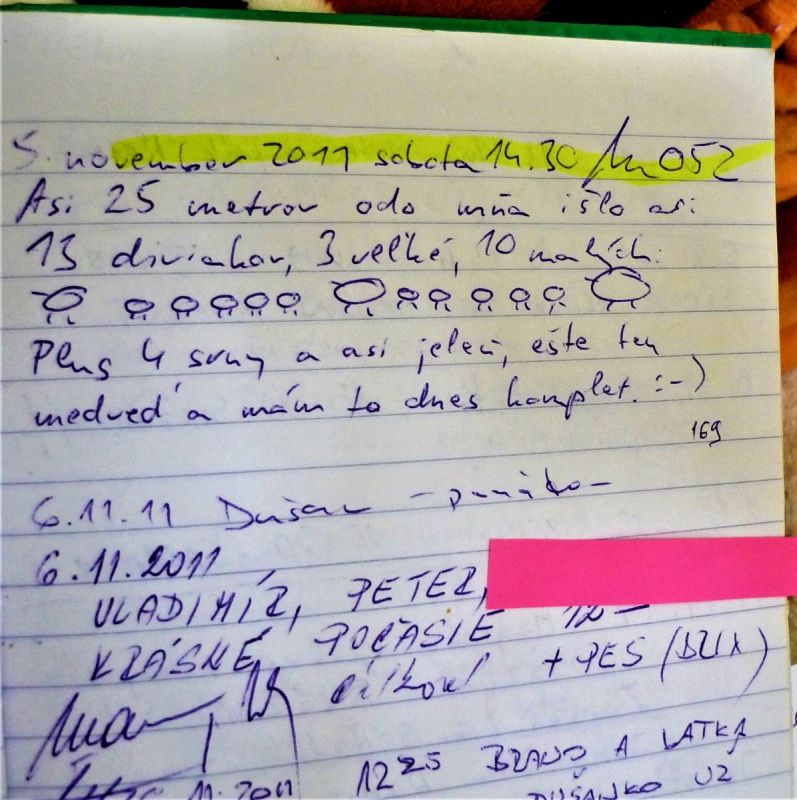 5. november 2011 sobota 14.30 052
Asi 25 metrov odo mňa išlo asi
13 diviakov, 3 veľké, 10 malých:
Plus 4 srny a asi jeleň, ešte ten
medveď a mám to dnes komplet. :-)
169
6.11.11 Dušan
6.11.2011
VLADIMÍR, PETER,
KRÁSNE POČASIE
+ PES (BRIX)
11.2011
12 25 BRAŇO A LATKA
DUŠANKO UŽ